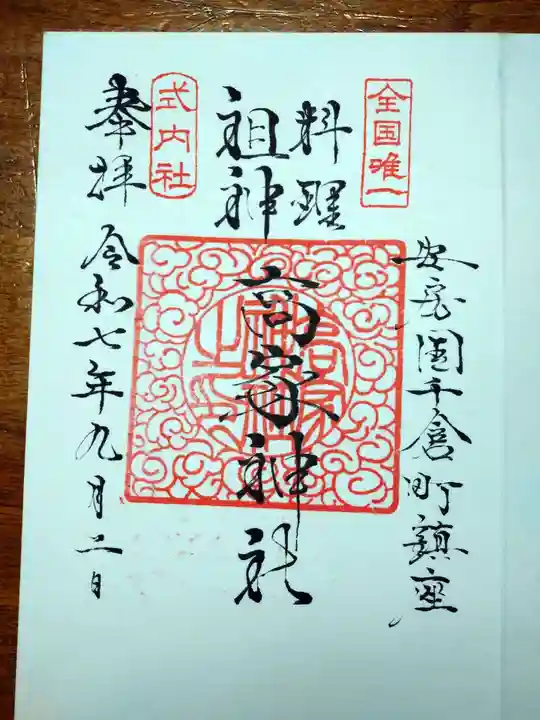 全国唯一
安房国千倉町鎮座
料理
祖神
高家神社
式内社
奉拝
令和七年九月二日